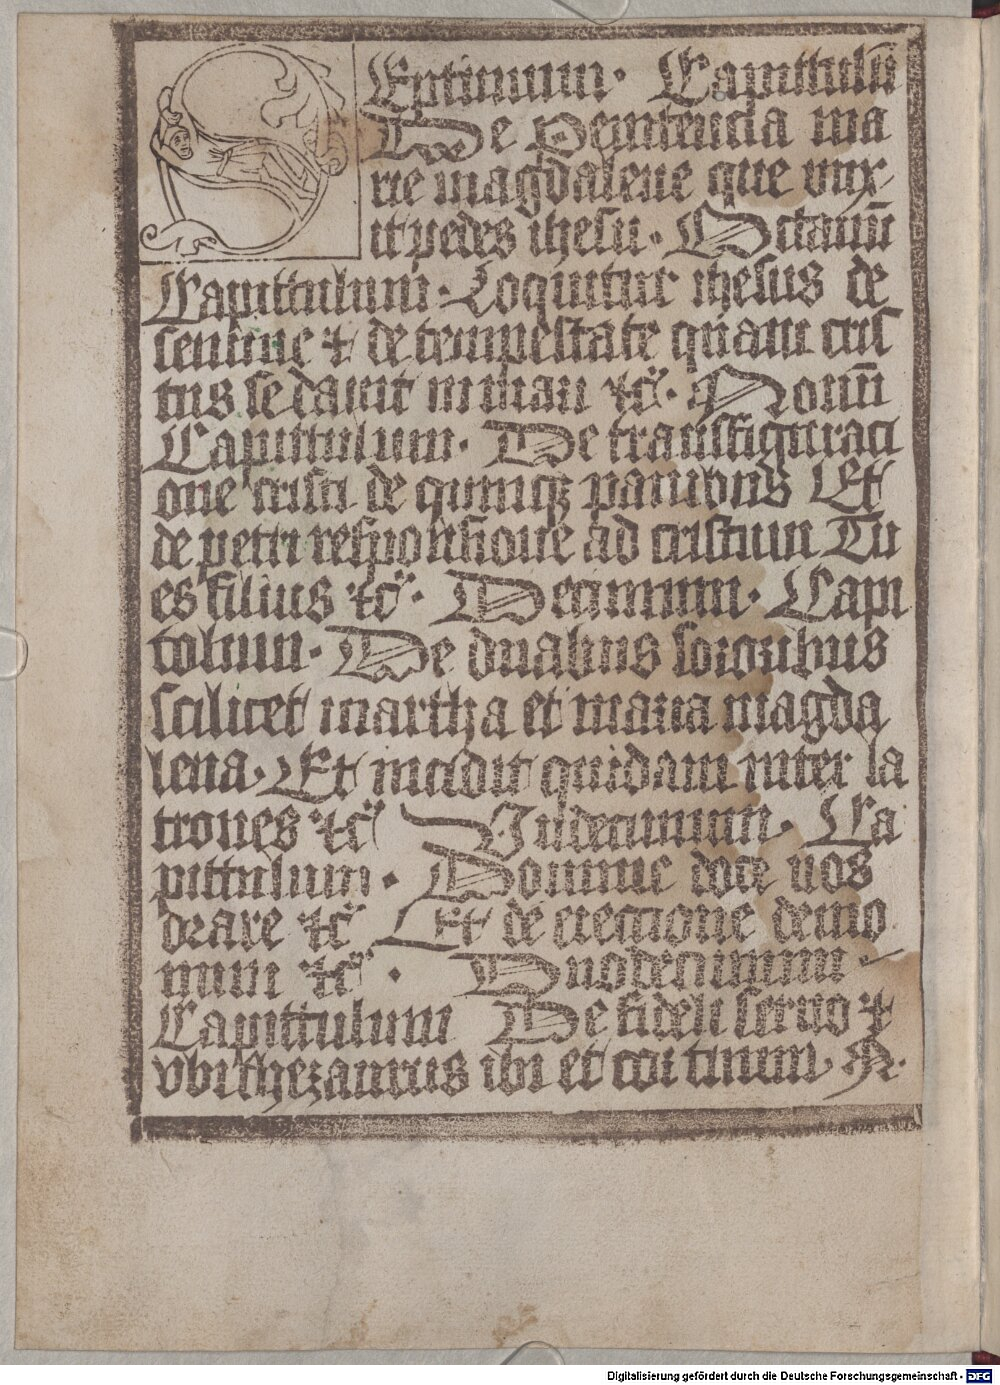 SEptimum. Capittulū
De penitencia ma
rie magdalene que vnx
it pedes ihesu. Octauū
Capittulum. Loquitur ihesus de
semine ⁊ de tempestate quam cris
tus sedauit in mari ⁊cͣ. Nonū
Capittulum. De transfiguraci
one cristi de quinqꝫ panibus Et
de petri responsione ad cristum Tu
es filius ⁊cͣ. Decimum. Capi
tolium. De duabus sororibus
scilicet martha et maria magda
lena. Et incidit quidam inter la
trones ⁊cͣ Vndecimum. Ca
pittulum. Domine doce nos
orare ⁊cͣ Et de eieccione demo
nium ⁊cͣ. Duodecimum
Capittulum De fideli seruo ⁊
vbi thezaurus ibi et cor tuum. A.
Digitalisierung gefördert durch die Deutsche Forschungsgemeinschaft - DFG